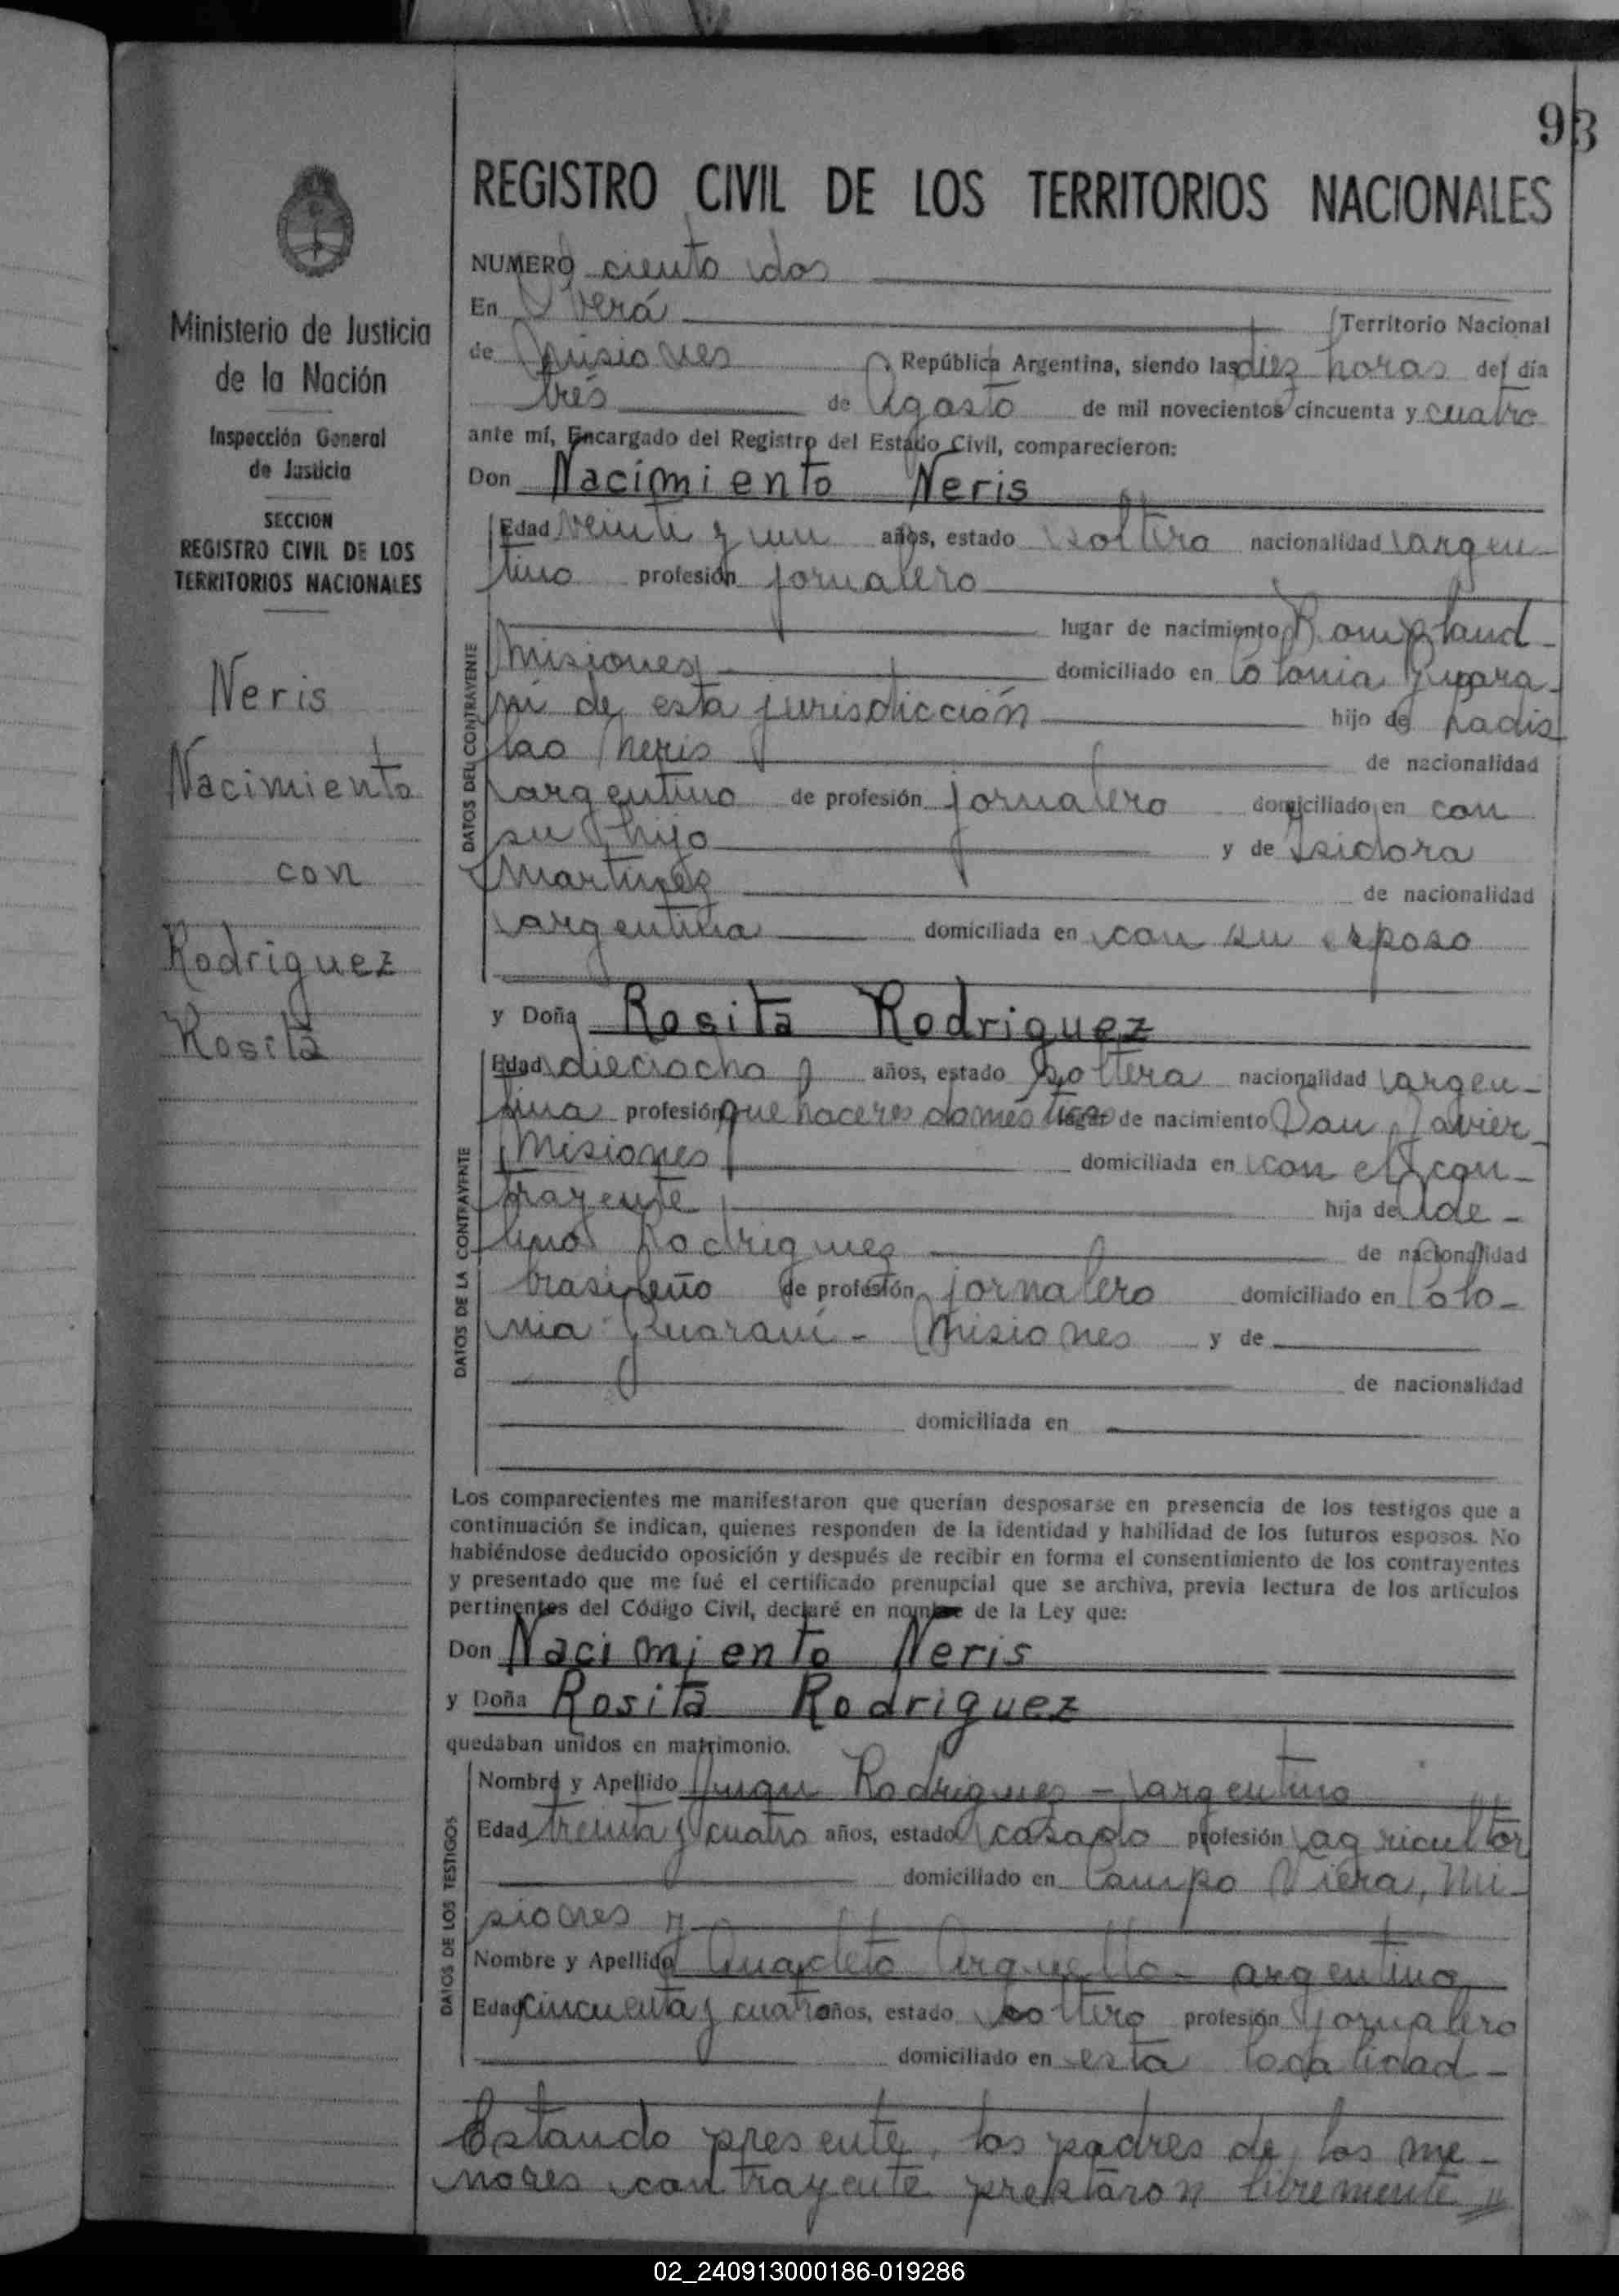 93
REGISTRO CIVIL DE LOS TERRITORIOS NACIONALES
Ministerio de Justicia
de la Nación
Inspección General
de Justicia
SECCION
REGISTRO CIVIL DE LOS
TERRITORIOS NACIONALES
Neris
Nacimiento
con
Rodriguez
Rosita
NUMERO ciento dos
En Oberá Territorio Nacional
de Misiones República Argentina, siendo las diez horas del día
trés de Agosto de mil novecientos cincuenta y cuatro
ante mí, Encargado del Registro del Estado Civil, comparecieron:
Don Nacimiento Neris
DATOS DEL CONTRAYENTE
Edad veinti y un años, estado soltero nacionalidad argen-
tino profesión jornalero
lugar de nacimiento Bompland-
Misiones domiciliado en Colonia Guara-
ní de esta jurisdicción hijo de Ladis
lao Neris de nacionalidad
argentino de profesión jornalero domiciliado en con
su hijo y de Isidora
Martinez de nacionalidad
argentina domiciliada en con su esposo
y Doña Rosita Rodriguez
DATOS DE LA CONTRAYENTE
Edad dieciocho años, estado soltera nacionalidad argen-
tina profesión que haceres domésticos lugar de nacimiento San Javier-
Misiones domiciliada en con el con-
trayente hija de Ade-
lino Rodriguez de nacionalidad
brasileño de profesión jornalero domiciliado en Colo-
nia Guaraní - Misiones y de
de nacionalidad
domiciliada en
Los comparecientes me manifestaron que querían desposarse en presencia de los testigos que a
continuación se indican, quienes responden de la identidad y habilidad de los futuros esposos. No
habiéndose deducido oposición y después de recibir en forma el consentimiento de los contrayentes
y presentado que me fué el certificado prenupcial que se archiva, previa lectura de los artículos
pertinentes del Código Civil, declaré en nombre de la Ley que:
Don Nacimiento Neris
y Doña Rosita Rodriguez
quedaban unidos en matrimonio.
DATOS DE LOS TESTIGOS
Nombre y Apellido Juan Rodriguez - argentino
Edad treinta y cuatro años, estado casado profesión agricultor
domiciliado en Campo Viera, Mi-
siones y
Nombre y Apellido Anacleto Arguello - argentino
Edad cincuenta y cuatro años, estado soltero profesión jornalero
domiciliado en esta localidad-
Estando presente, los padres de los me-
nores contrayente prestaron libremente //
02_240913000186-019286